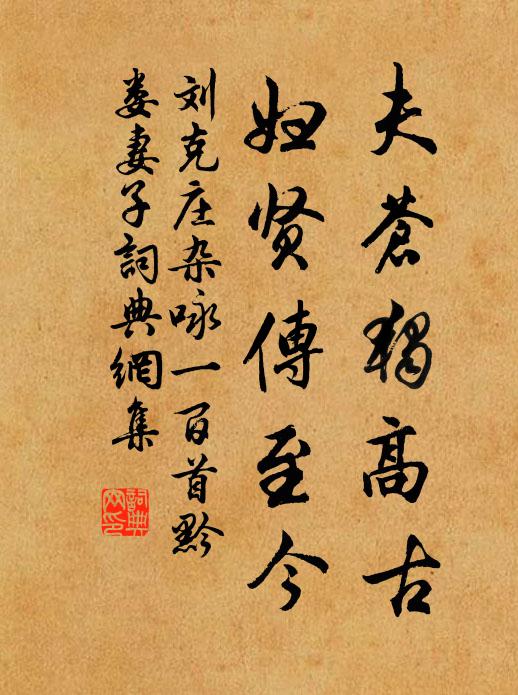 夫苍獨高古
妇贤傳至今
刘克庄杂咏一百首黔
娄妻子詞典網集
詞典網印